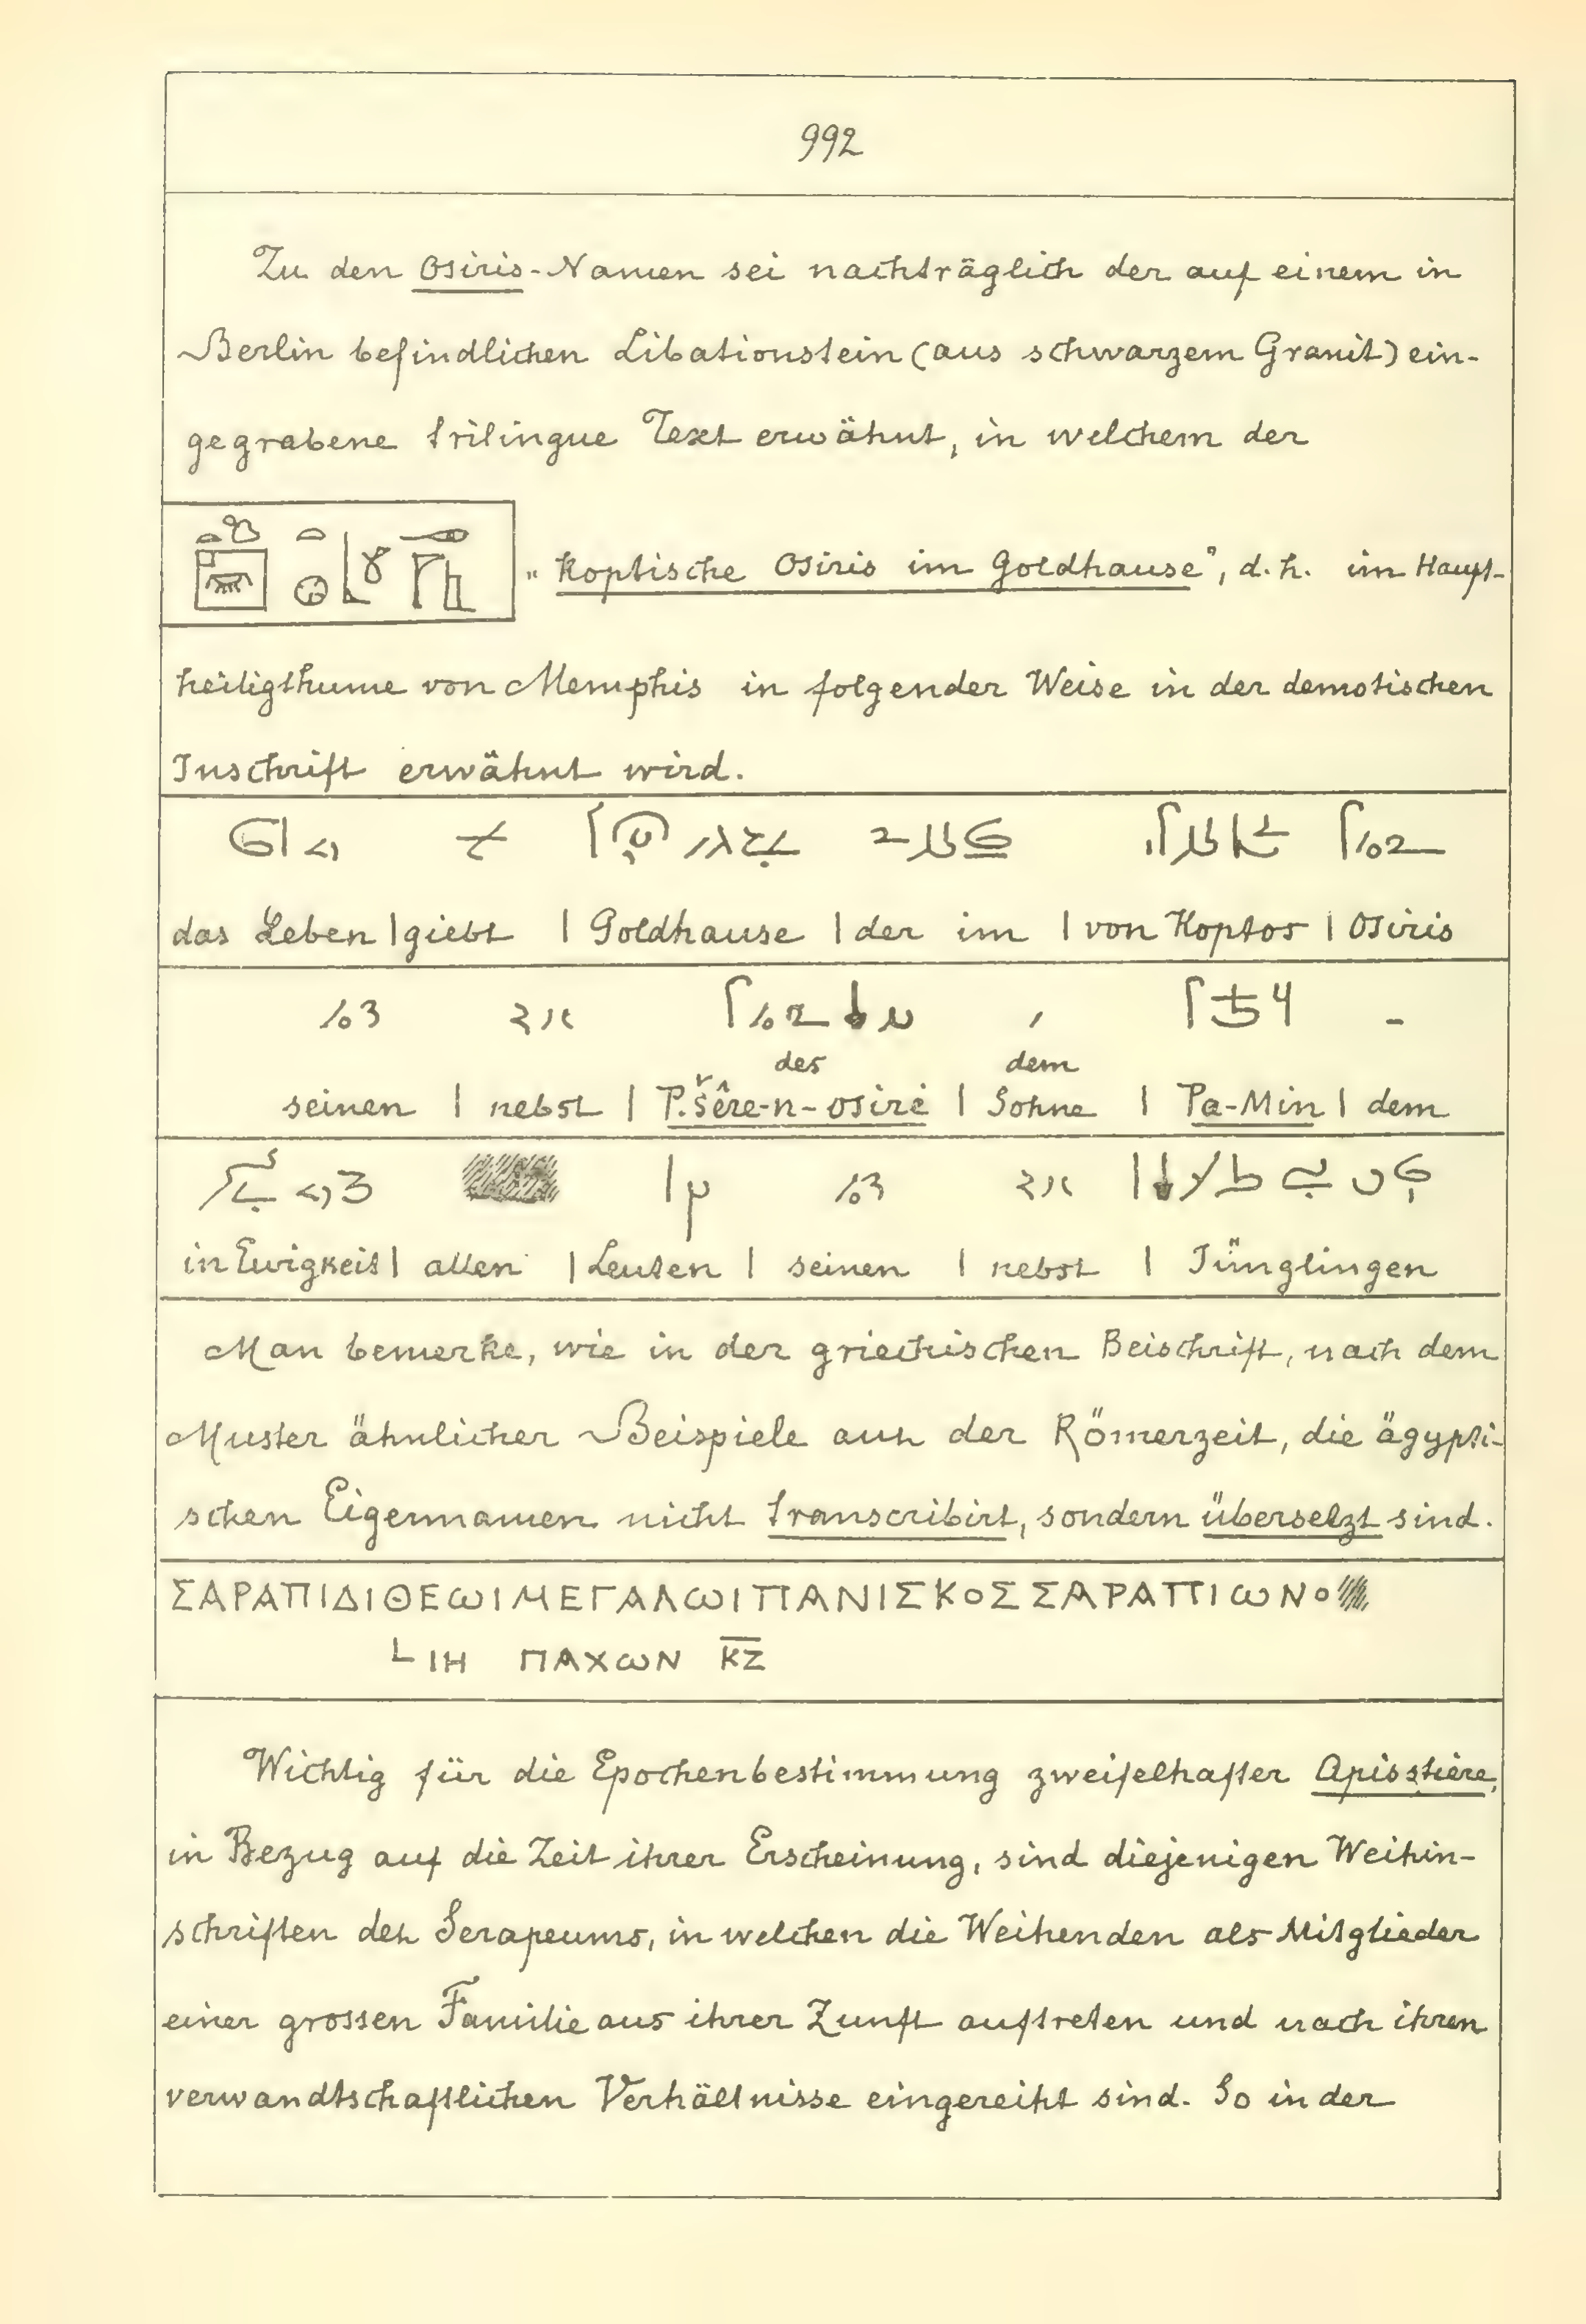 992
Zu den Osiris-Namen sei nachträglich der auf einem in
Berlin befindlichen Libationstein (aus schwarzem Granit) ein-
gegrabene trilingue Text erwähnt, in welchem der
„Koptische Osiris im Goldhause", d.h. im Haupt-
heiligthume von Memphis in folgender Weise in der demotischen
Inschrift erwähnt wird.
das Leben | giebt | Goldhause | der im | von Koptos | Osiris
des dem
seinen | nebst | P.šêre-n-osiri | Sohne | Pa-Min | dem
in Ewigkeit | allen | Leuten | seinen | nebst | Jünglingen
Man bemerke, wie in der griechischen Beischrift, nach dem
Muster ähnlicher Beispiele aus der Römerzeit, die ägypti-
schen Eigennamen nicht transcribirt, sondern übersetzt sind.
ΣΑΡΑΠΙΔΙΘΕωΙΜΕΓΑΛωΙΠΑΝΙΣΚΟΣΣΑΡΑΠΙωΝΟ
L ΙΗ ΠΑΧωΝ ΚΖ
Wichtig für die Epochenbestimmung zweifelhafter Apisstiere,
in Bezug auf die Zeit ihrer Erscheinung, sind diejenigen Weihin-
schriften des Serapeums, in welchen die Weihenden als Mitglieder
einer grossen Familie aus ihrer Zunft auftreten und nach ihren
verwandtschaftlichen Verhältnisse eingereiht sind. So in der